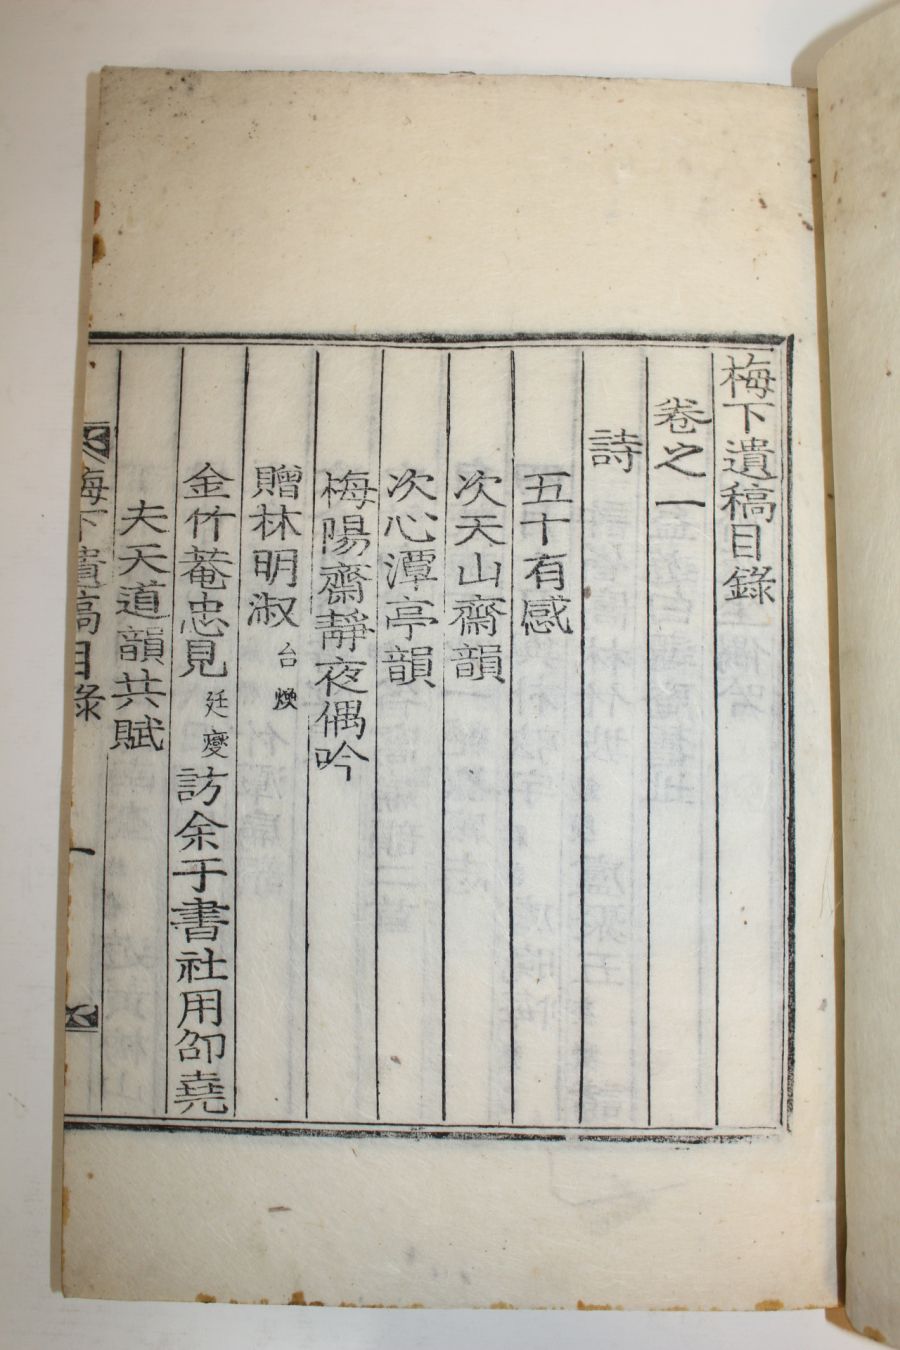 梅下遺稿目錄
卷之一
詩
五十有感
次天山齋韻
次心潭亭韻
梅陽齋靜夜偶吟
贈林明淑 台煥
金竹菴忠見 廷燮 訪余于書社用邵堯
夫天道韻共賦
梅下遺稿目錄 一